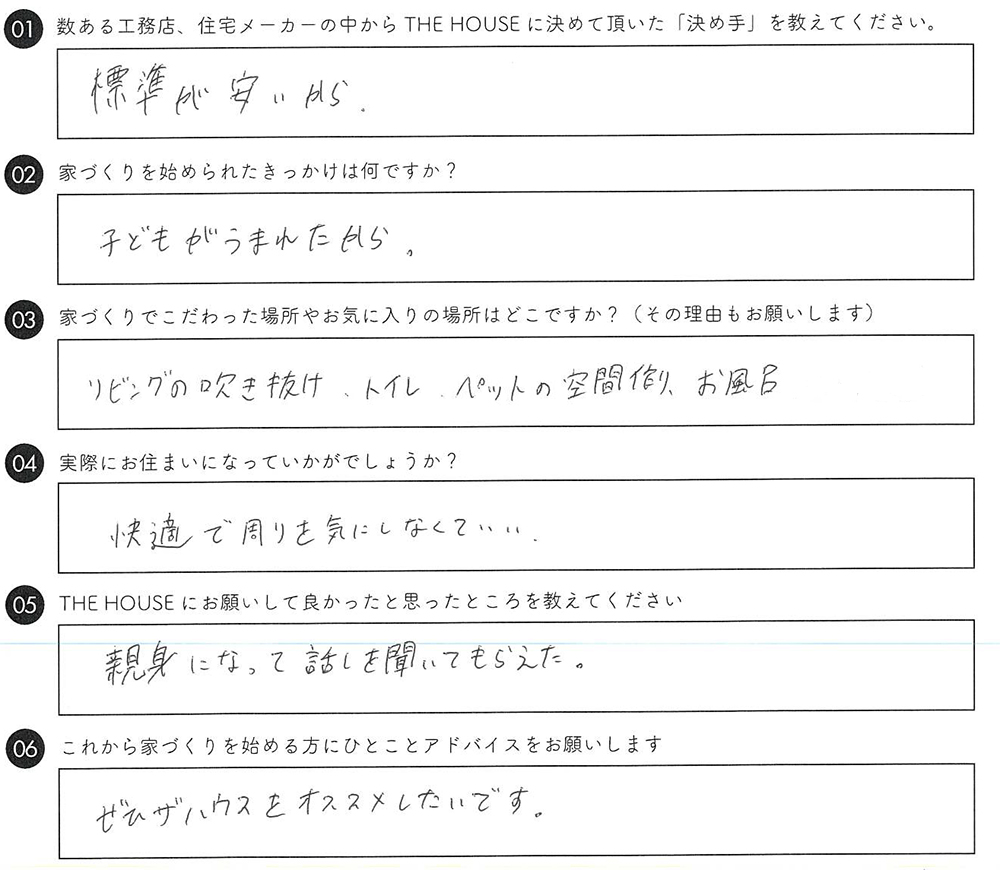 01 数ある工務店、住宅メーカーの中から THE HOUSE に決めて頂いた「決め手」を教えてください。
標準が安いから.
02 家づくりを始められたきっかけは何ですか？
子どもがうまれたから。
03 家づくりでこだわった場所やお気に入りの場所はどこですか？（その理由もお願いします）
リビングの吹き抜け、トイレ、ペットの空間作り、お風呂
04 実際にお住まいになっていかがでしょうか？
快適で周りを気にしなくていい.
05 THE HOUSE にお願いして良かったと思ったところを教えてください
親身になって話しを聞いてもらえた。
06 これから家づくりを始める方にひとことアドバイスをお願いします
ぜひザハウスをオススメしたいです。